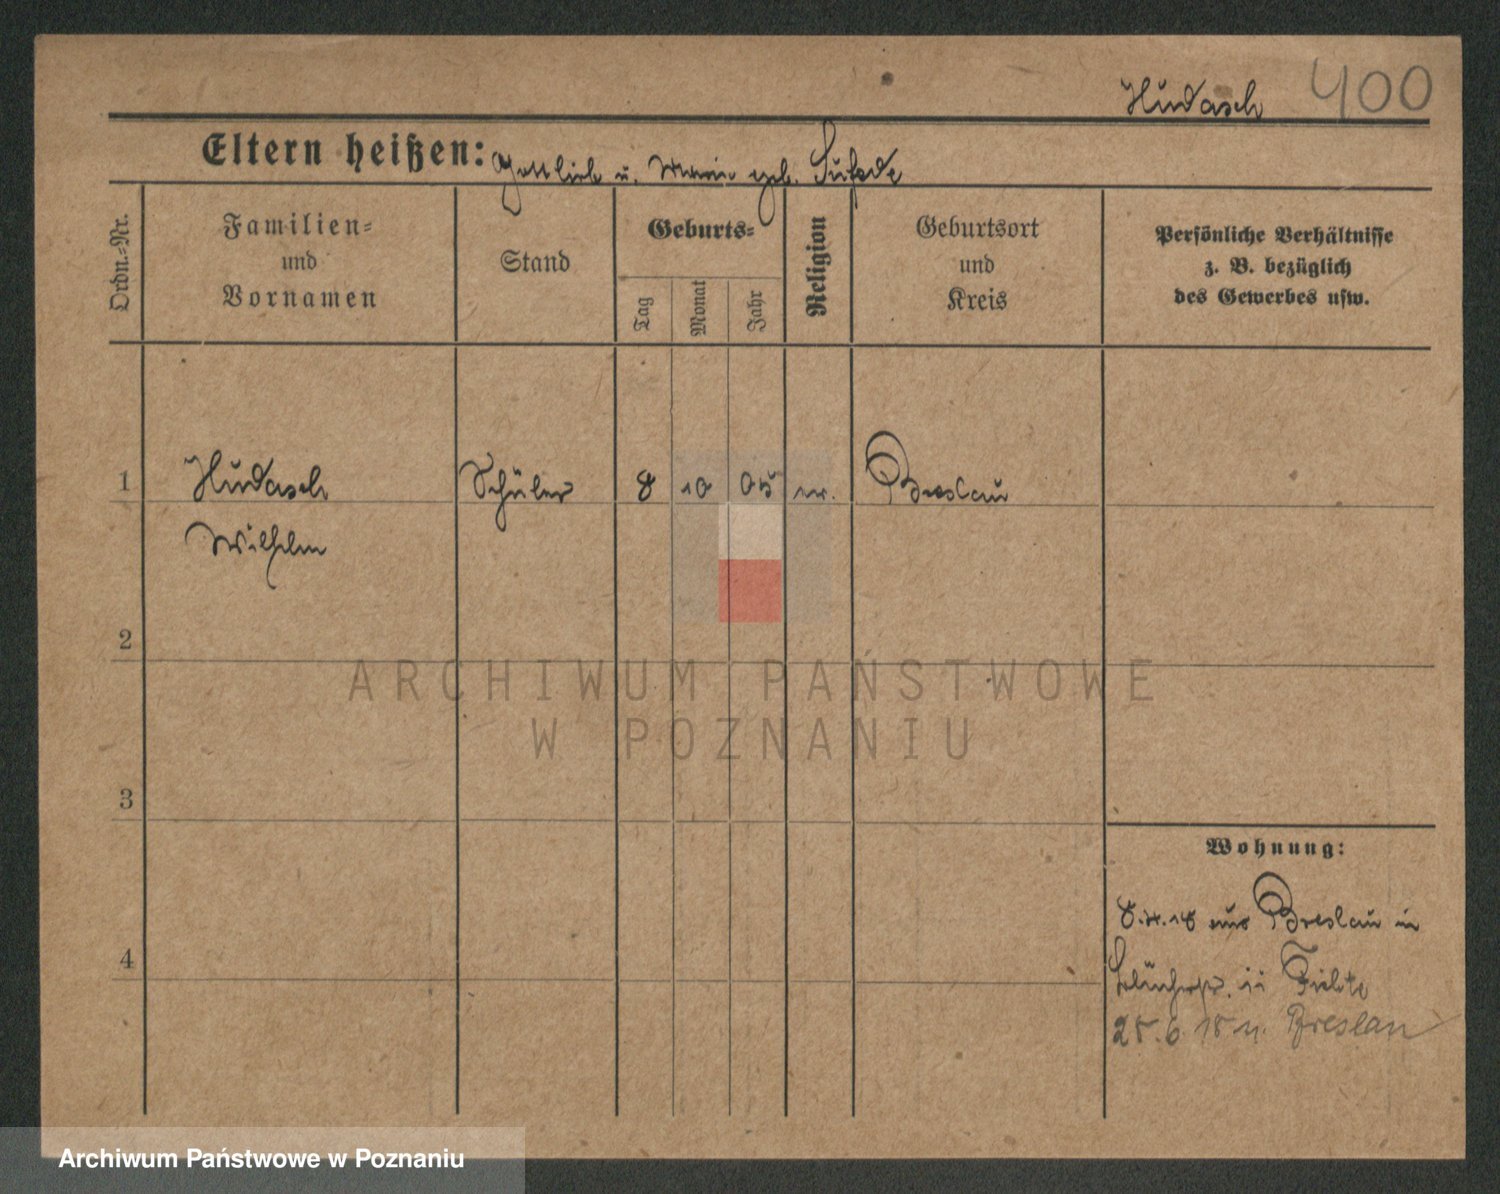 Hudasch 400
Eltern heißen: Gottlieb u. Marie geb.
Ordn.-Nr.
Familien-
und
Vornamen
Stand
Geburts-
Tag
Monat
Jahr
Religion
Geburtsort
und
Kreis
Persönliche Verhältnisse
z. B. bezüglich
des Gewerbes usw.
1 Hudasch Schüler 8 10 05 Breslau
Wilhelm
2
ARCHIWUM PAŃSTWOWE
W POZNANIU
3
Wohnung:
8.4.18 aus Breslau in
4
25.6.18 n. Breslau
Archiwum Państwowe w Poznaniu